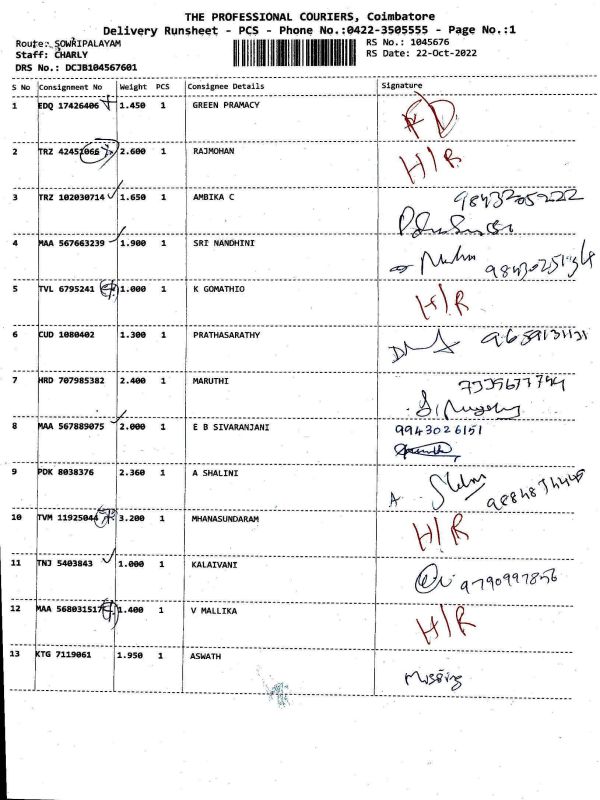 THE PROFESSIONAL COURIERS, Coimbatore
Delivery Runsheet - PCS - Phone No.:0422-3505555 - Page No.:1
Route: SOWRIPALAYAM
RS No.: 1045676
Staff: CHARLY
RS Date: 22-Oct-2022
DRS No.: DCJB104567601
S No Consignment No Weight PCS Consignee Details Signature
1 EDQ 17426406 1.450 1 GREEN PRAMACY RD
2 TRZ 42451066 2.600 1 RAJMOHAN H/R
3 TRZ 102030714 1.650 1 AMBIKA C 9843205222
4 MAA 567663239 1.900 1 SRI NANDHINI
5 TVL 6795241 1.000 1 K GOMATHIO H/R
6 CUD 1080402 1.300 1 PRATHASARATHY 9659131131
7 HRD 707985382 2.400 1 MARUTHI
8 MAA 567889075 2.000 1 E B SIVARANJANI 9943026151
9 PDK 8038376 2.360 1 A SHALINI A
10 TVM 11925044 3.200 1 MHANASUNDARAM H/R
11 TNJ 5403843 1.000 1 KALAIVANI 9790997856
12 MAA 568031517 1.400 1 V MALLIKA H/R
13 KTG 7119061 1.950 1 ASWATH Missing